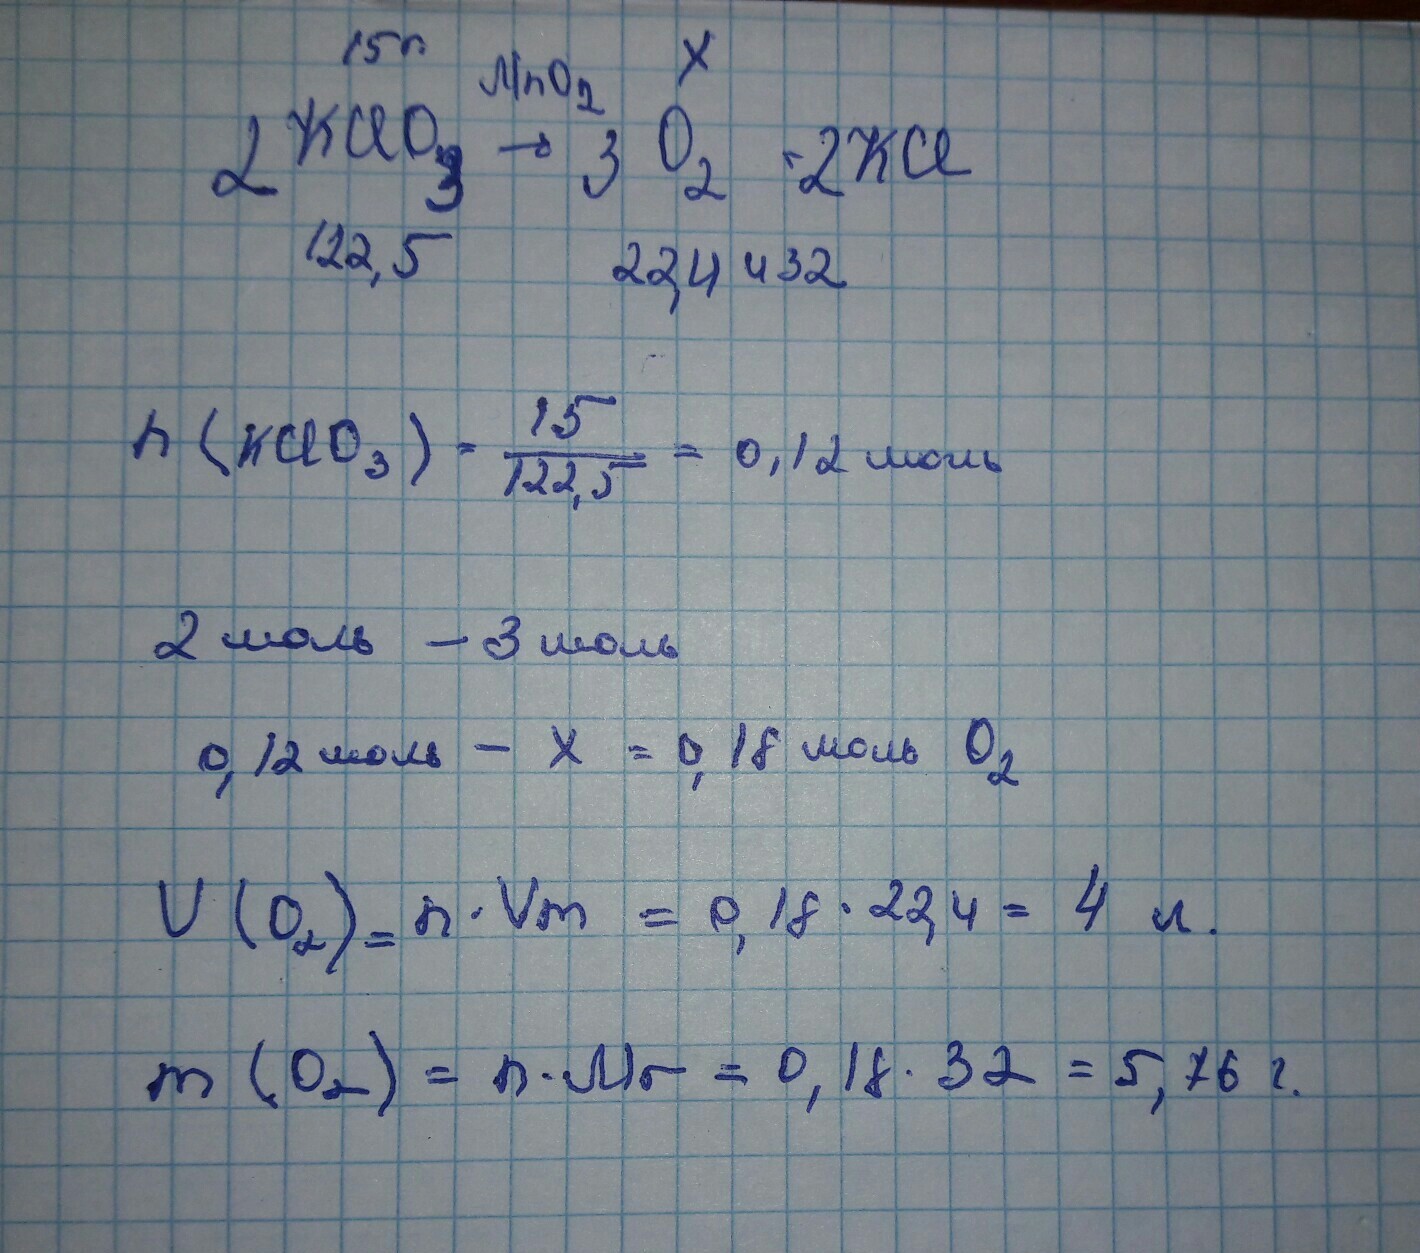 15г X
2KClO3 MnO2 → 3O2 + 2KCl
122,5 22,4 и 32
n (KClO3) = 15/122,5 = 0,12 моль
2 моль – 3 моль
0,12 моль – X = 0,18 моль O2
V (O2) = n · Vm = 0,18 · 22,4 = 4 л.
m (O2) = n · Mr = 0,18 · 32 = 5,76 г.